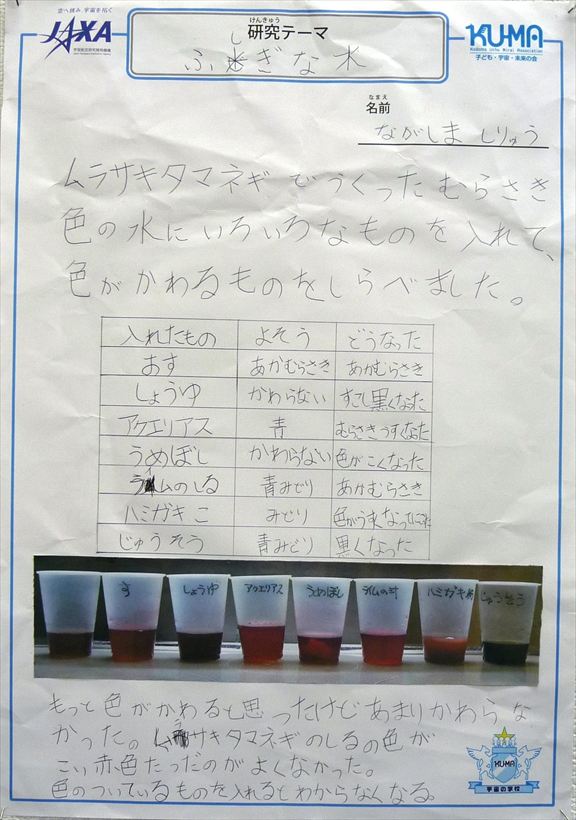 空へ挑み、宇宙を拓く
JAXA
宇宙航空研究開発機構
けんきゅう
研究テーマ
ふしぎな水
KUMA
Kodomo Uchu Mirai Association
子ども・宇宙・未来の会
なまえ
名前
ながしま しりゅう
ムラサキタマネギでつくったむらさき
色の水にいろいろなものを入れて、
色がかわるものをしらべました。
入れたもの よそう どうなった
おす あかむらさき あかむらさき
しょうゆ かわらない すこし黒くなった
アクエリアス 青 むらさきうすくなった
うめぼし かわらない 色がこくなった
ライムのしる 青みどり あかむらさき
ハミガキこ みどり
じゅうそう 青みどり 黒くなった
す しょうゆ アクエリアス うめぼし ライムの汁 ハミガキ粉 じゅうそう
もっと色がかわると思ったけどあまりかわらな
かった。ムラサキタマネギのしるの色が
こい赤色だったのがよくなかった。
色のついているものを入れるとわからなくなる。
KUMA
宇宙の学校